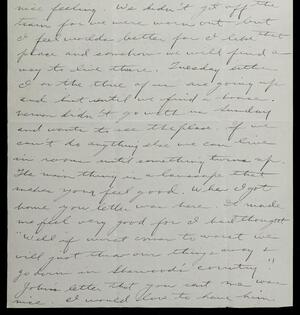 nice feeling. We didn't get off the
team for we were worn out - but
I feel worlds better for I like that
place and somehow we will find a
way to live there. Tuesday either
I or the three of us are going up
and hunt until we find a house.
didn't go with us Sunday
and wants to see the place. If we
can't do anything else we can live
in rooms until something turns up.
The main thing is a landscape that
makes you feel good. When I got
home your letter was here. It made
me feel very good for I had thought
"Well if worst comes to worst we
will just throw our things away &
go down in Sherwood's country."
John's letter that you sent me was
nice. I would love to have him